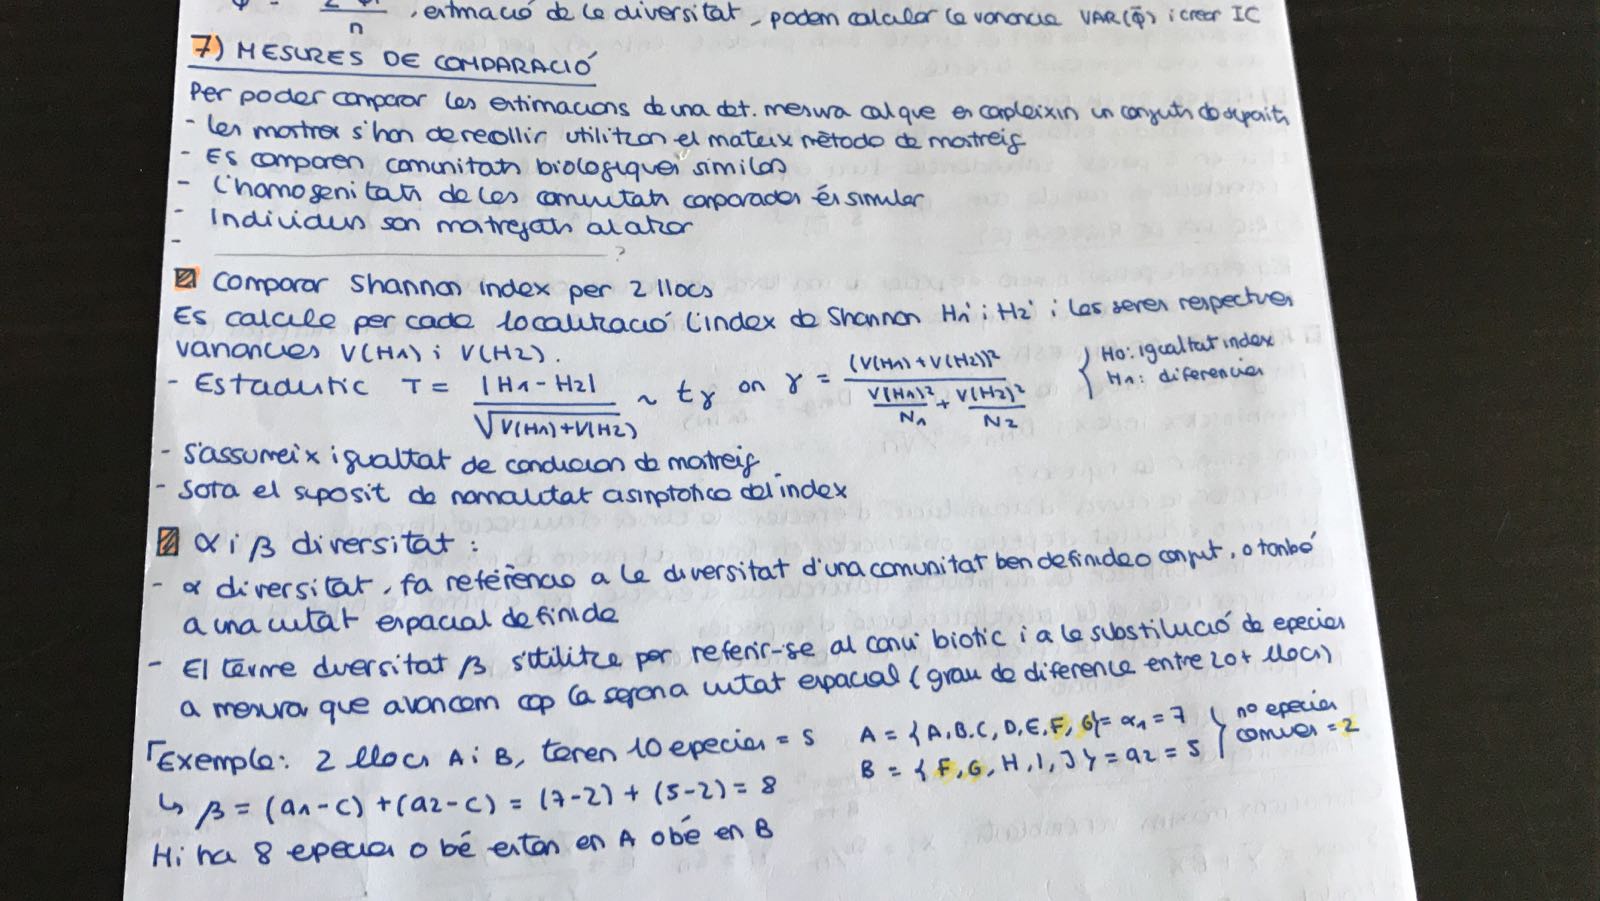 φ = Σφi / n , estimació de la diversitat, podem calcular la variancia VAR(φ̄) i crear IC
7) MESURES DE COMPARACIÓ
Per poder comparar les estimacions de una det. mesura cal que es compleixin un conjunt de suposits
- Les mostres s'han de recollir utilitzan el mateix método de mostreig
- Es comparen comunitats biologiques similars
- L'homogenitats de les comunitats comparades és similar
- Individus son mostrejats al atzar
- ?
Comparar Shannon index per 2 llocs
Es calcula per cada localització l'index de Shannon H1' i H2' i les seves respectives
variancies V(H1) i V(H2).
- Estadistic T = |H1 - H2| / √(V(H1)+V(H2)) ~ tγ on γ = (V(H1)+V(H2))² / (V(H1)²/N1 + V(H2)²/N2) } H0: igualtat index
H1: diferencies
- S'assumeix igualtat de condicions de mostreig.
- Sota el suposit de normalitat asimptotica del index
α i β diversitat:
- α diversitat, fa referència a la diversitat d'una comunitat ben definida o conjunt, o també
a una unitat espacial definida
- El terme diversitat β s'utilitza per referir-se al canvi biotic i a la substitució de especies
a mesura que avancem cap la segona unitat espacial (grau de diferencia entre 2 o + llocs)
Exemple: 2 llocs A i B, tenen 10 especies = S A = {A,B,C,D,E,F,G} = α1 = 7 } no especies
comunes = 2
B = {F,G,H,I,J} = a2 = 5
↳ β = (a1-c) + (a2-c) = (7-2) + (5-2) = 8
Hi ha 8 especies o bé estan en A o bé en B